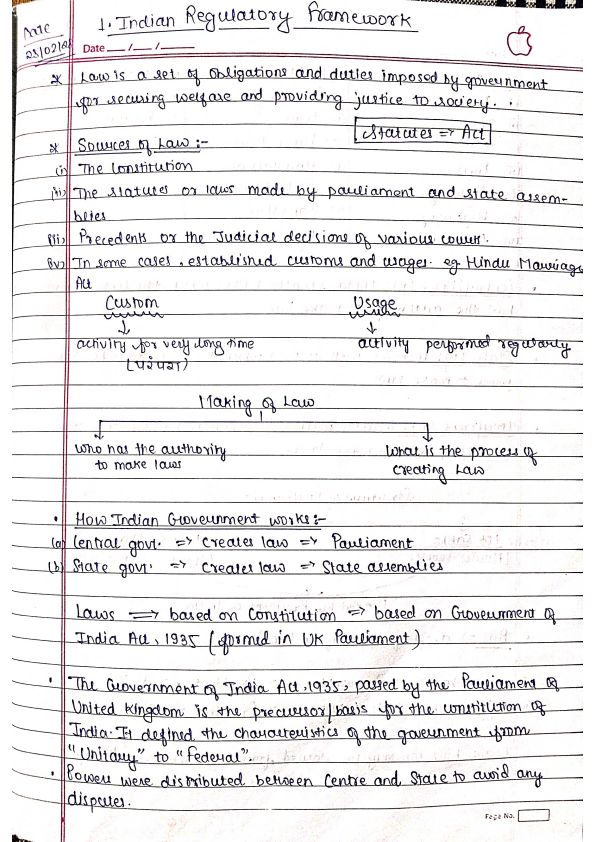 1. Indian Regulatory Framework
Date
Date __/__/__
* Law is a set of obligations and duties imposed by government
for securing welfare and providing justice to society.
Statutes => Act
* Sources of Law :-
(i) The Constitution
(ii) The statutes or laws made by parliament and state assem-
blies
(iii) Precedents or the Judicial decisions of various court.
(iv) In some cases, established customs and usages. eg Hindu Marriage
Act
Custom Usage
↓ ↓
activity for very long time activity performed regularly
(परंपरा)
Making of Law
who has the authority What is the process of
to make laws creating Law
• How Indian Government works :-
(a) Central govt. => Creates law => Parliament
(b) State govt. => Creates law => State assemblies
Laws => based on Constitution => based on Government of
India Act, 1935 (formed in UK Parliament)
• The Government of India Act, 1935, passed by the Parliament of
United Kingdom is the precursor/basis for the constitution of
India. It defined the characteristics of the government from
"Unitary" to "Federal".
• Powers were distributed between Centre and State to avoid any
disputes.
Page No.